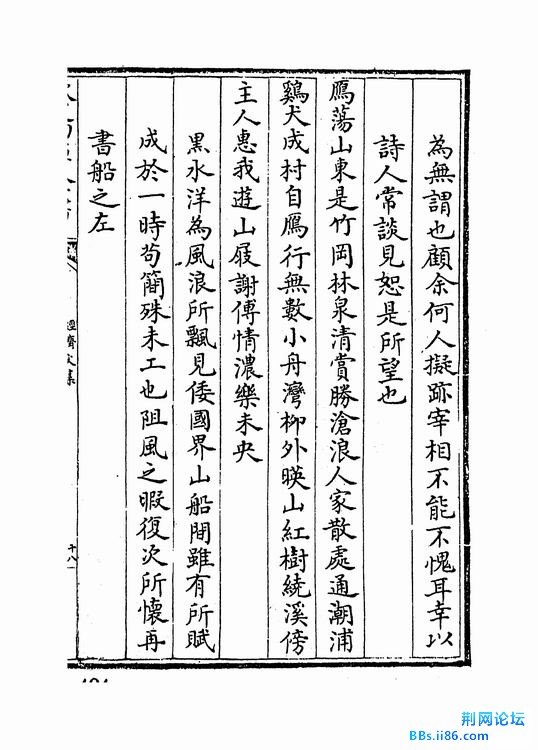 為無謂也顧余何人擬跡宰相不能不愧耳幸以
詩人常談見恕是所望也
鴈蕩山東是竹岡林泉清賞勝滄浪人家散處通潮浦
鷄犬成村自鴈行無數小舟灣柳外暎山紅樹繞溪傍
主人惠我遊山屐謝傅情濃樂未央
黒水洋為風浪所飄見倭國界山船閒雖有所賦
成於一時苟簡殊未工也阻風之暇復次所懐再
書船之左
經濟文集
十八
荆网论坛
BBs.ii86.com